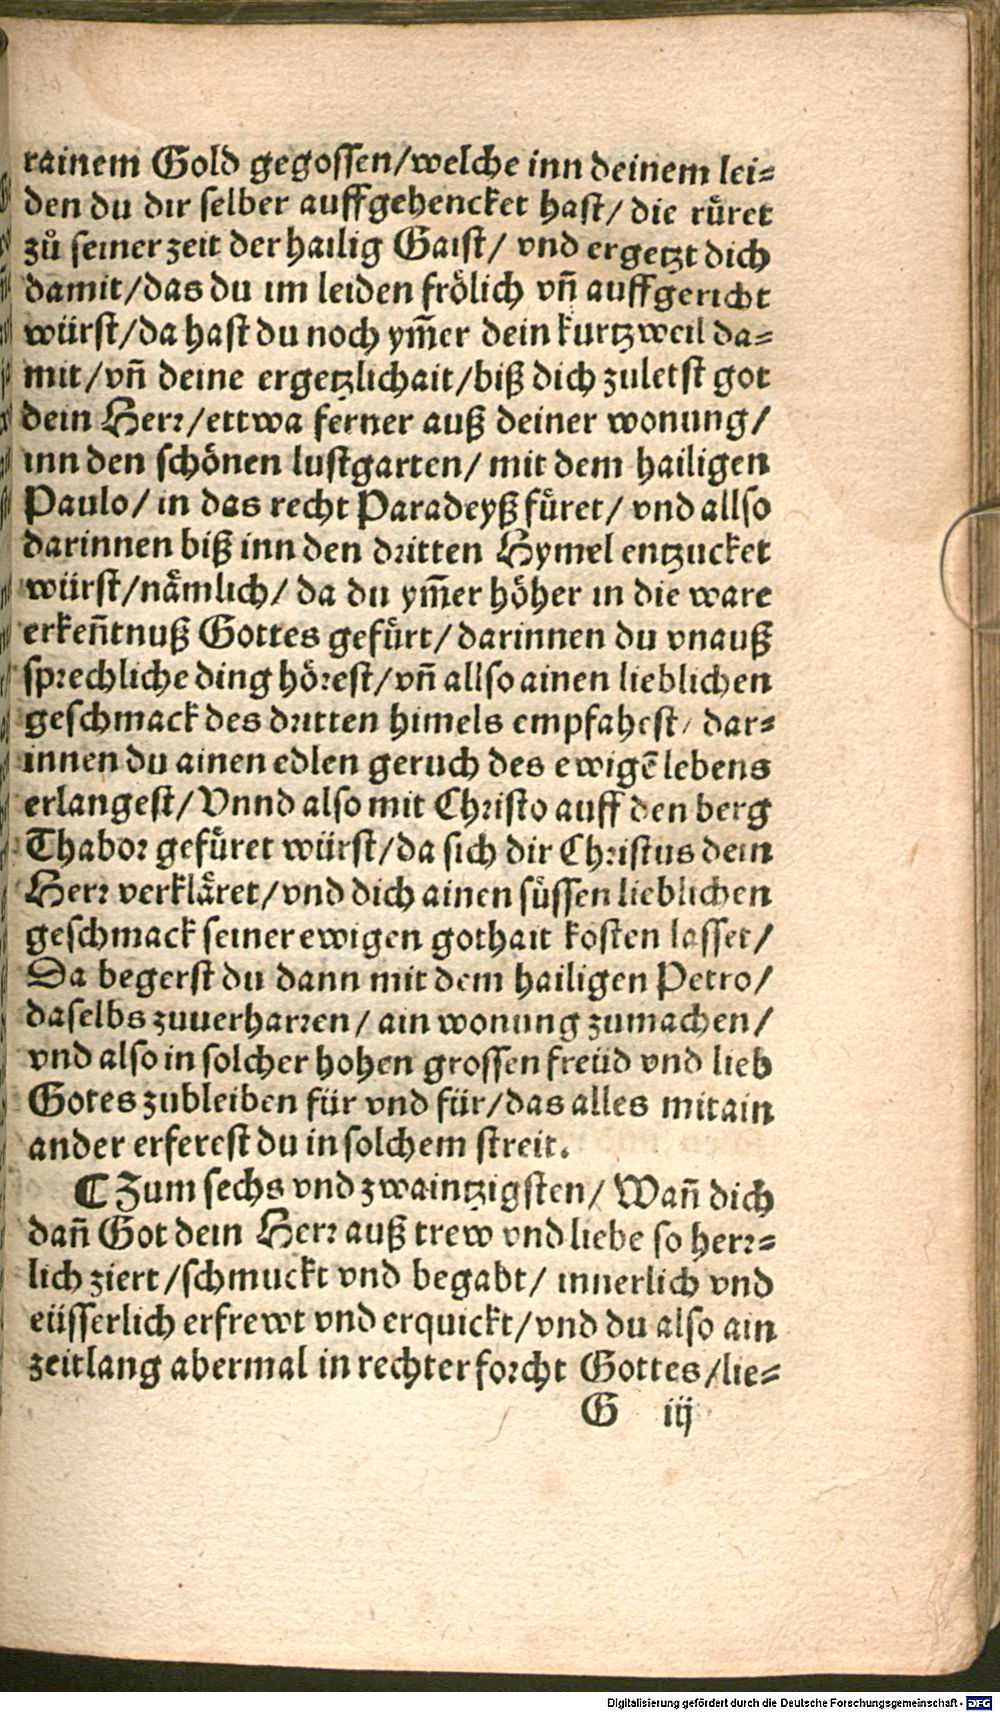 rainem Gold gegossen/welche inn deinem lei⸗
den du dir selber auffgehencket hast/ die růret
zů seiner zeit der hailig Gaist/ vnd ergetzt dich
damit/das du im leiden frölich vñ auffgericht
würst/da hast du noch ym̃er dein kurtzweil da⸗
mit/vñ deine ergetzlichait/biß dich zuletst got
dein Herr/ettwa ferner auß deiner wonung/
inn den schönen lustgarten/ mit dem hailigen
Paulo/ in das recht Paradeyß fůret/ vnd allso
darinnen biß inn den dritten Hymel entzucket
würst/nämlich/ da du ym̃er höher in die ware
erkeñtnuß Gottes gefůrt/ darinnen du vnauß
sprechliche ding hörest/vñ allso ainen lieblichen
geschmack des dritten himels empfahest/ dar⸗
innen du ainen edlen geruch des ewigẽ lebens
erlangest/ Vnnd also mit Christo auff den berg
Thabor gefůret würst/da sich dir Christus dein
Herr verkläret/vnd dich ainen sůssen lieblichen
geschmack seiner ewigen gothait kosten lasset/
Da begerst du dann mit dem hailigen Petro/
daselbs zuuerharren/ ain wonung zumachen/
vnd also in solcher hohen grossen freüd vnd lieb
Gotes zubleiben für vnd für/das alles mitain
ander erferest du in solchem streit.
¶ Zum sechs vnd zwaintzigsten/ Wañ dich
dañ Got dein Herr auß trew vnd liebe so herr⸗
lich ziert/schmuckt vnd begabt/ innerlich vnd
eüsserlich erfrewt vnd erquickt/vnd du also ain
zeitlang abermal in rechter forcht Gottes/lie⸗
G iij
Digitalisierung gefördert durch die Deutsche Forschungsgemeinschaft - DFG